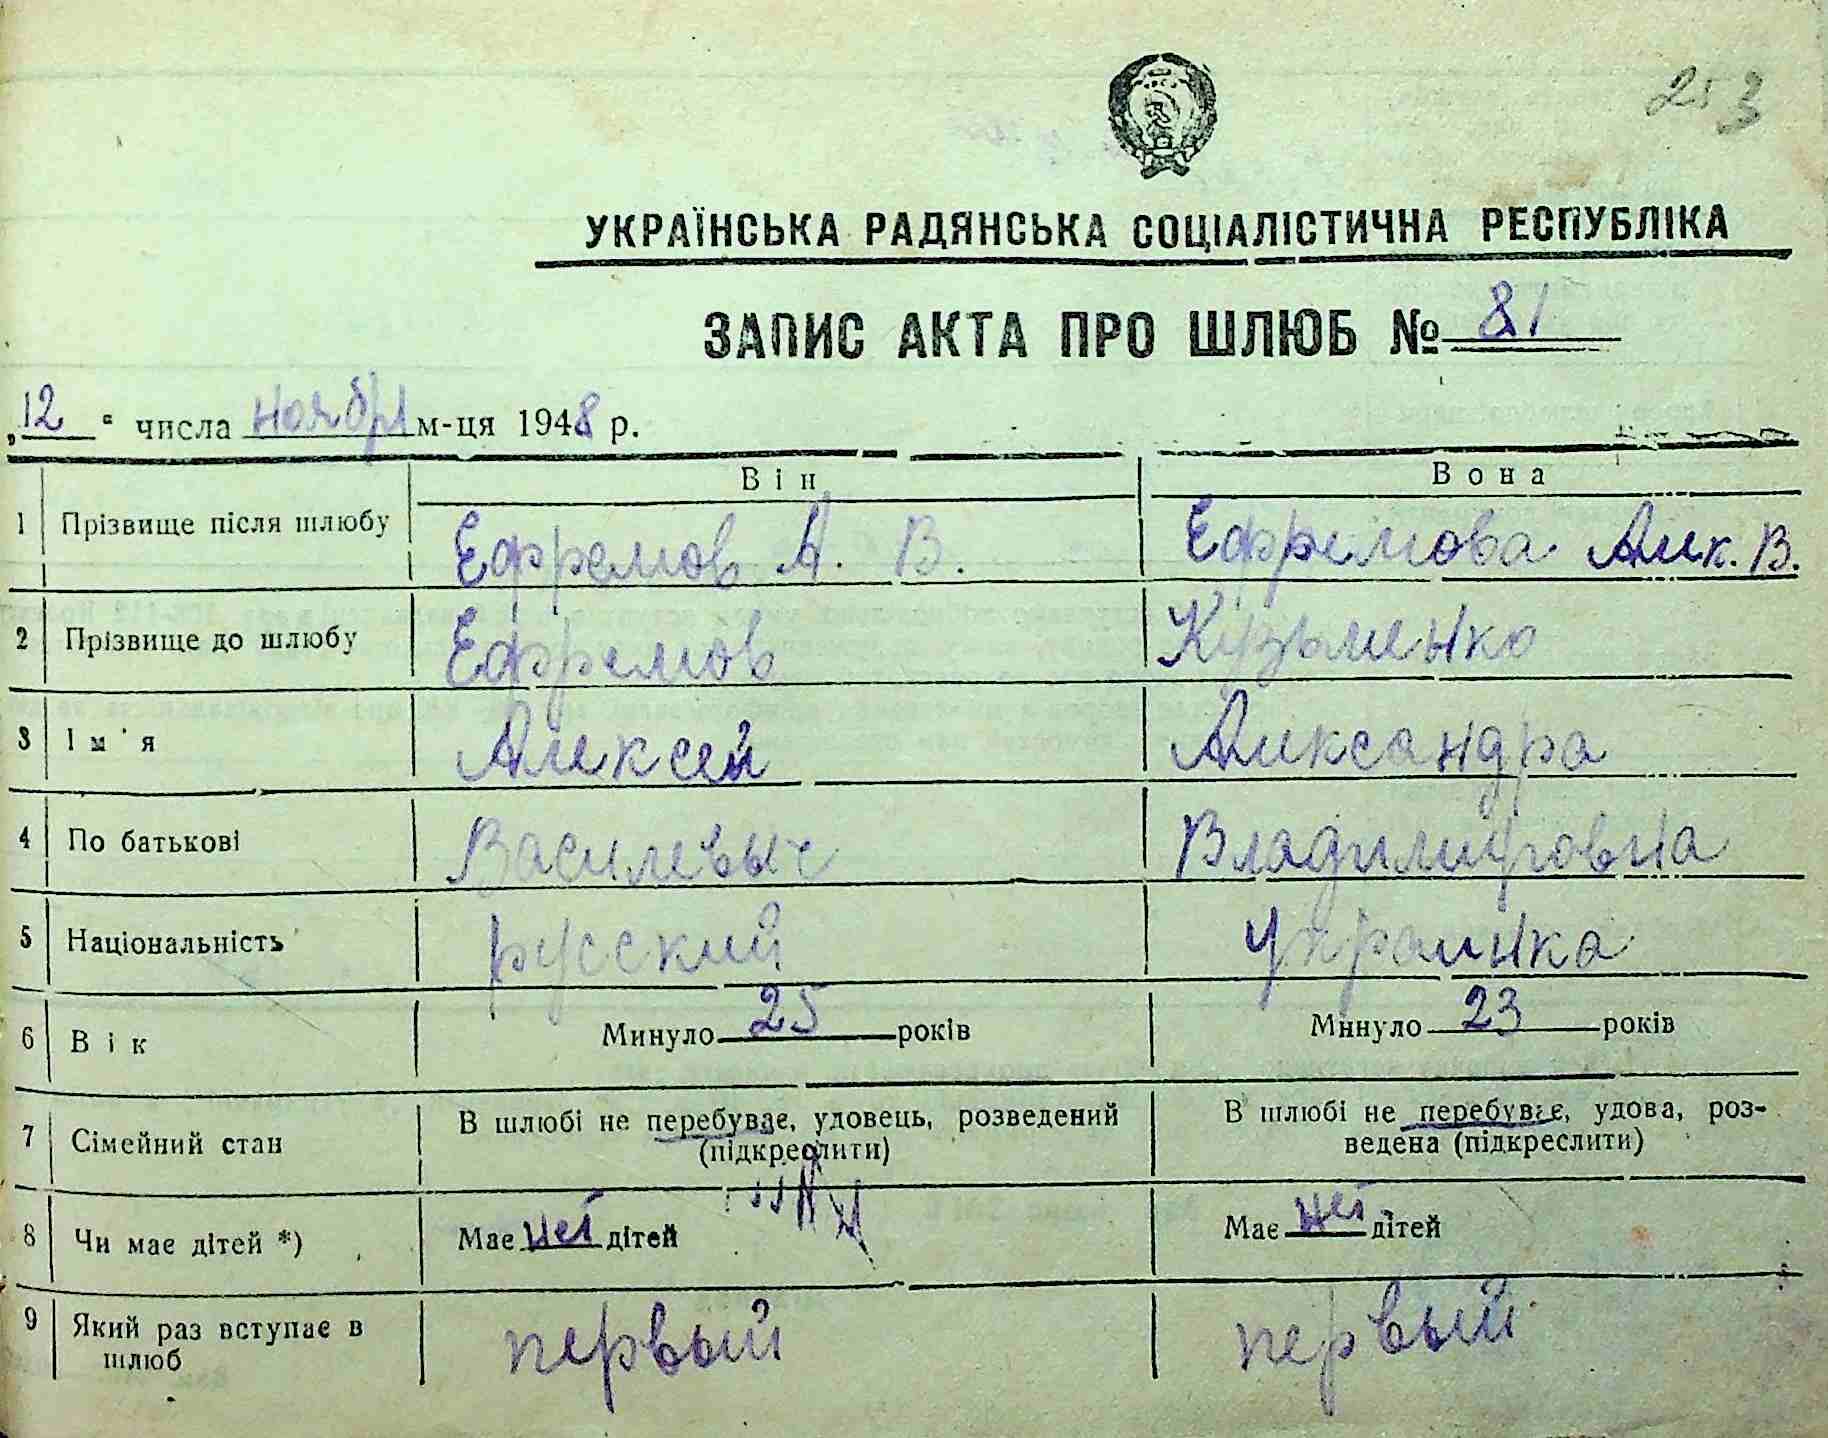 253
УКРАЇНСЬКА РАДЯНСЬКА СОЦІАЛІСТИЧНА РЕСПУБЛІКА
ЗАПИС АКТА ПРО ШЛЮБ № 81
„12“ числа ноября м-ця 1948 р.
Він Вона
1 Прізвище після шлюбу Ефремов А. В. Ефремова Алек. В.
2 Прізвище до шлюбу Ефремов Кузьменко
3 Ім'я Алексей Александра
4 По батькові Василевыч Владимировна
5 Національність русский украинка
6 Вік Минуло 25 років Минуло 23 років
7 Сімейний стан В шлюбі не перебуває, удовець, розведений (підкреслити) В шлюбі не перебуває, удова, роз-
ведена (підкреслити)
8 Чи має дітей *) Має нет дітей Має нет дітей
9 Який раз вступає в шлюб первый первый